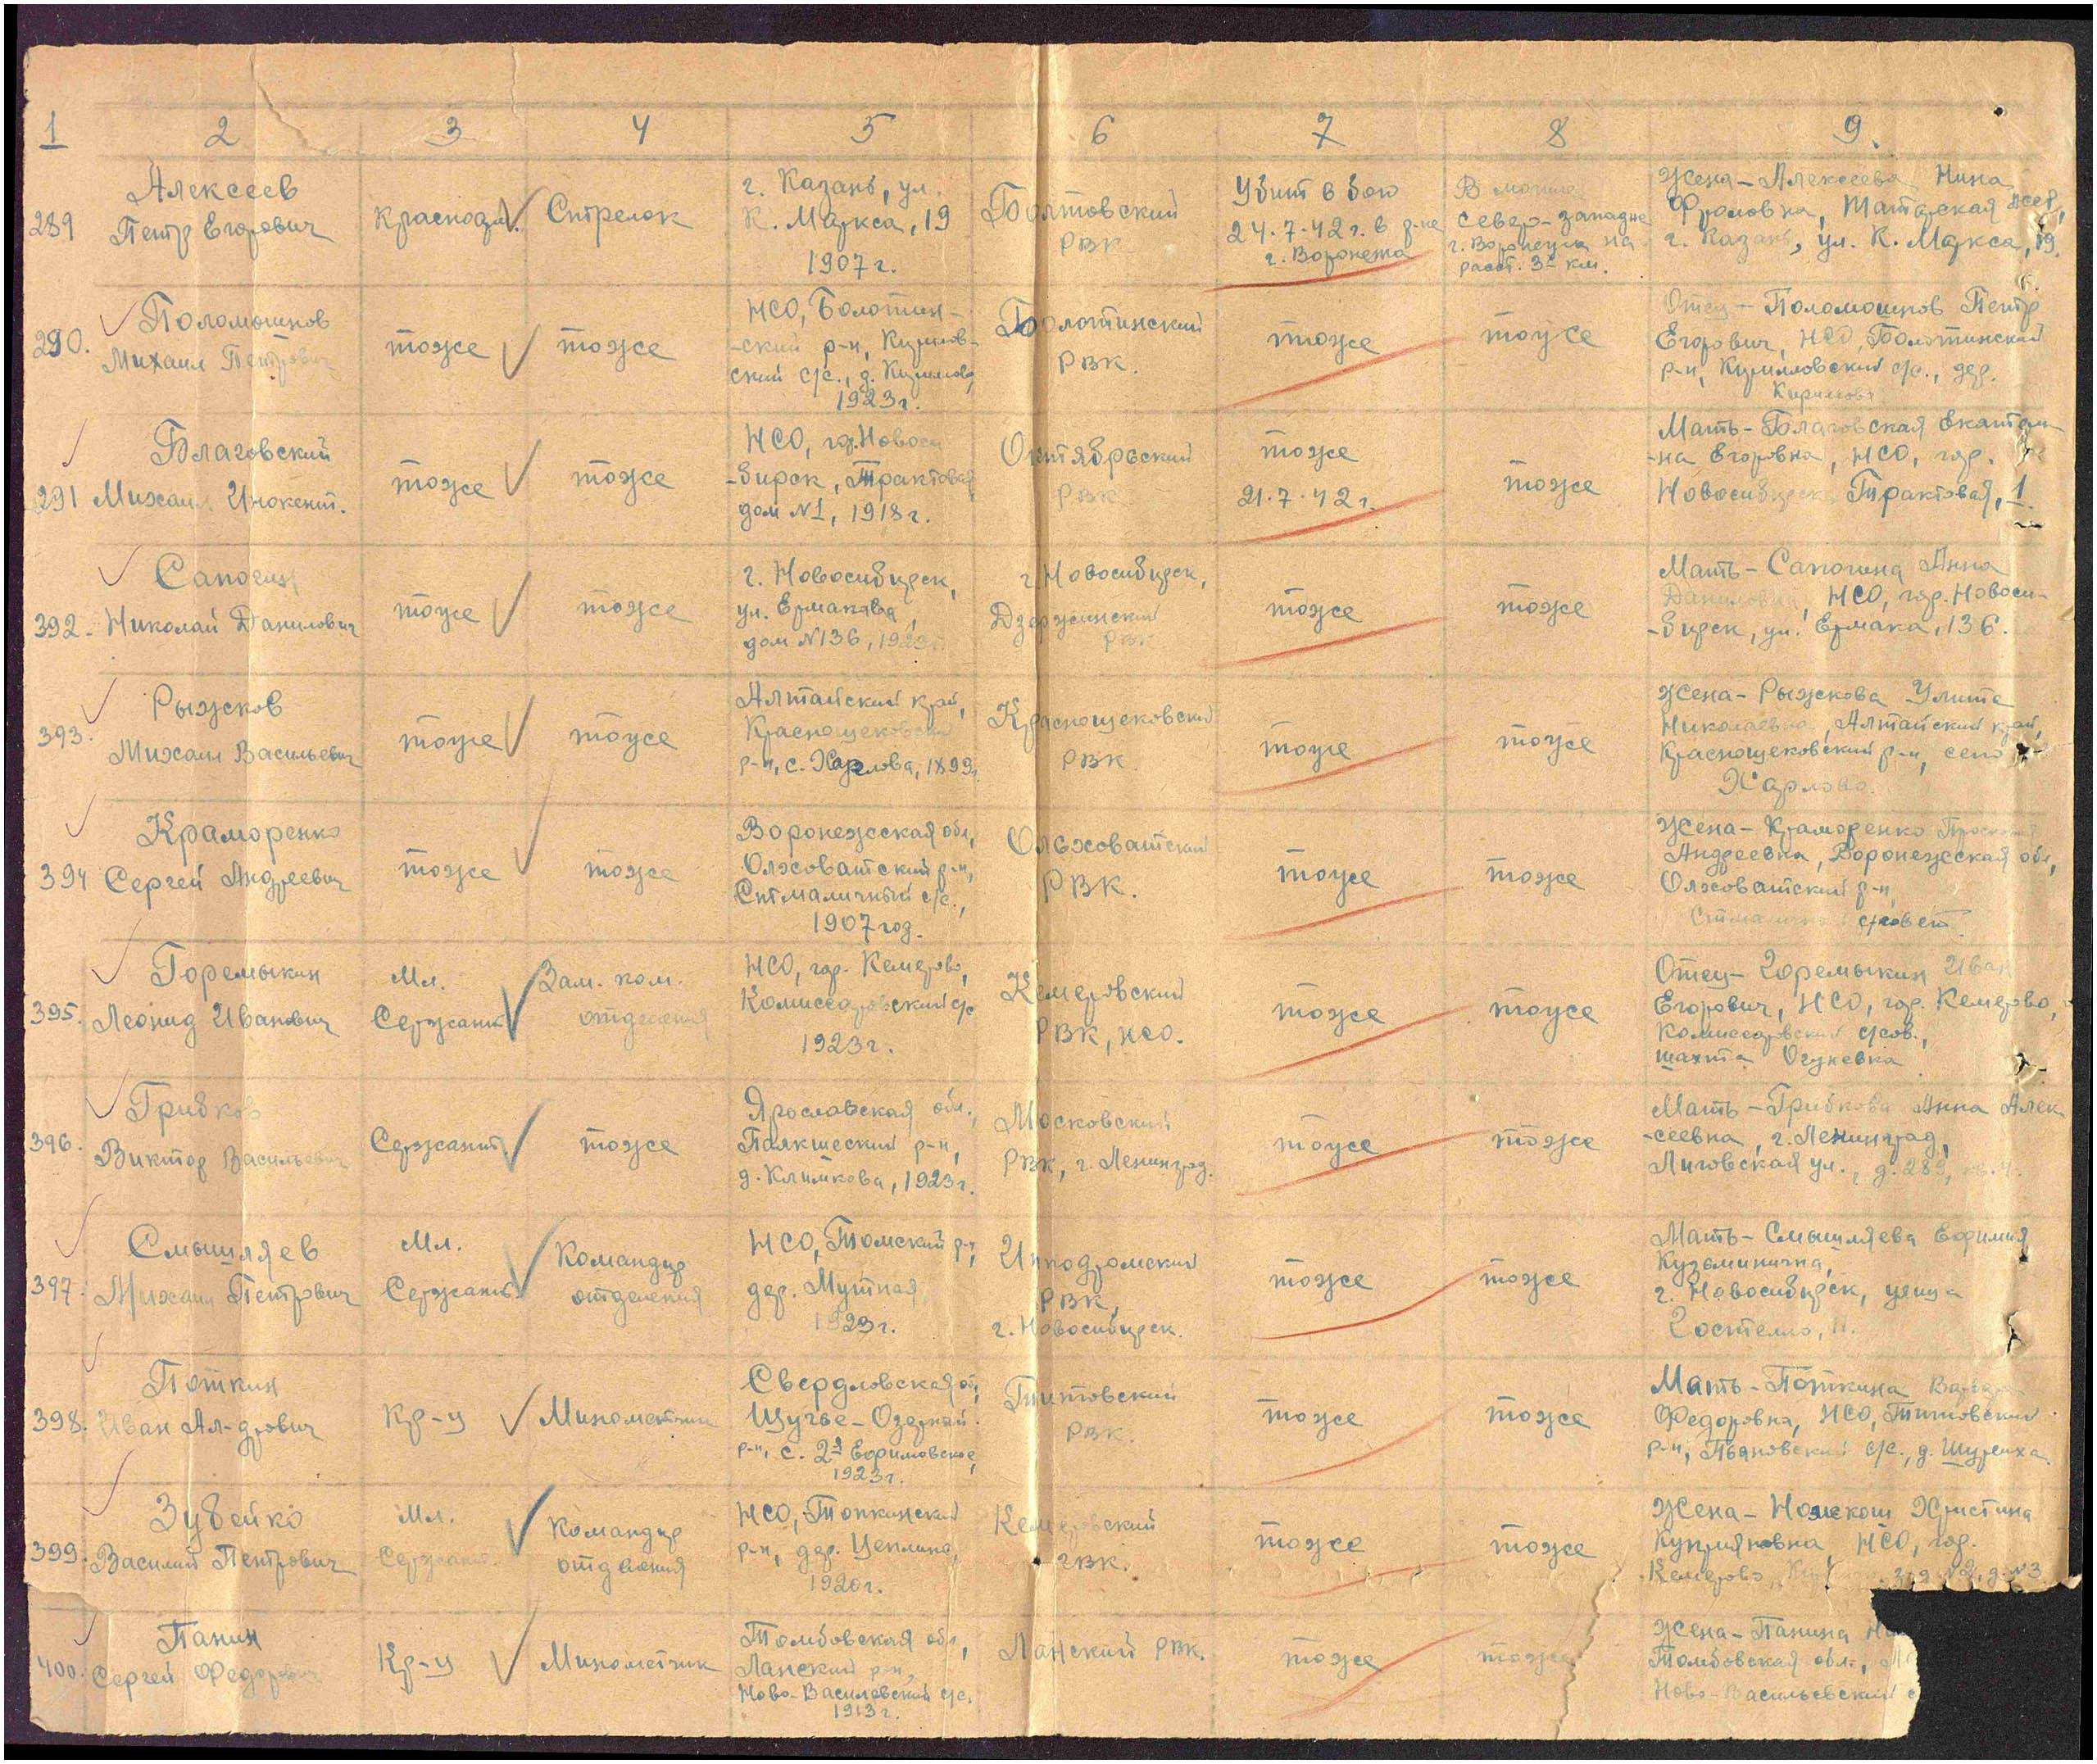 1 2 3 4 5 6 7 8 9.
289
Алексеев
Петр Егорович
Красноар.
Стрелок
г. Казань, ул.
К. Маркса, 19
1907 г.
РВК
Убит в бою
24.7.42 г. в р-не
г. Воронежа
В могиле
северо-западнее
г. Воронежа на
расст. 3х км.
Жена - Алексеева Нина
Фроловна, Татарская АССР,
г. Казань, ул. К. Маркса, 19.
290.
Поломошнов
Михаил Петрович
тоже
тоже
НСО, Болотин-
-ский р-н, Кирилов-
ский с/с., д. Кирилово,
1923 г.
Болотинский
РВК.
тоже
тоже
Отец - Поломошнов Петр
Егорович, НСО, Болотинский
р-н, Кирилловский с/с., дер.
Кирилово
291
Благовский
Михаил Инокент.
тоже
тоже
НСО, гор. Новоси
-бирск, Трактовая
дом №1, 1918 г.
Октябрьский
РВК
тоже
21.7.42 г.
тоже
Мать - Благовская Екатери-
-на Егоровна, НСО, гор.
Новосибирск Трактовая, 1
392.
Сапогин
Николай Данилович
тоже
тоже
г. Новосибирск,
ул. Ермакова,
дом №136, 1923
г. Новосибирск,
Дзержинский
РВК
тоже
тоже
Мать - Сапогина Анна
Даниловна, НСО, гор. Новоси-
-бирск, ул. Ермака, 136.
393.
Рыжков
Михаил Васильевич
тоже
тоже
Алтайский край,
Краснощековский
р-н, с. Харлова, 1899г.
Краснощековский
РВК
тоже
тоже
Жена - Рыжкова Улита
Николаевна, Алтайский край,
Краснощековский р-н, село
Харлово.
394
Краморенко
Сергей Андреевич
тоже
тоже
Воронежская обл,
Олховатский р-н,
с/с.,
1907 год.
Ольховатский
РВК.
тоже
тоже
Жена - Краморенко
Андреевна, Воронежская обл,
Олховатский р-н,
с/совет.
395.
Горемыкин
Леонид Иванович
Мл.
Сержант
Зам. ком.
отделения
НСО, гор. Кемерово,
Комиссаровский с/с
1923 г.
Кемеровский
РВК, НСО.
тоже
тоже
Отец - Горемыкин Иван
Егорович, НСО, гор. Кемерово,
Комиссаровский с/сов.,
шахта Огуневка
396.
Грибков
Виктор Васильевич
Сержант
тоже
Ярославская обл.,
р-н,
д. Климкова, 1923 г.
Московский
РВК, г. Ленинград.
тоже
тоже
Мать - Грибкова Анна Алек
-сеевна, г. Ленинград,
Лиговская ул., д. 289,
397.
Смышляев
Михаил Петрович
Мл.
Сержант.
Командир
отделения
НСО, Томский р-н,
дер. Мутная
1923 г.
Ипподромский
РВК,
г. Новосибирск.
тоже
тоже
Мать - Смышляева Ефимия
Кузьминична,
г. Новосибирск, улица
11.
398.
Поткин
Иван Ал-дрович
Кр-ц
Минометчик
Свердловская об,
Щучье-Озерный.
р-н, с. 2е Ефимовское,
1923 г.
Титовский
РВК.
тоже
тоже
Мать - Поткина
Федоровна, НСО, Титовский
р-н, Пьяновский с/с., д. Шуриха
399.
Зубейко
Василий Петрович
Мл.
Сержант
Командир
отделения
НСО, Топкинский
р-н, дер. Цеплина,
1920 г.
Кемеровский
ГВК.
тоже
тоже
Жена - Христина
Куприяновна НСО, гор.
Кемерово, д. №3
400.
Панин
Сергей Федорович
Кр-ц
Минометчик
Томбовская обл,
Ланский р-н,
Ново-Василевский с/с.
1913 г.
Ланский РВК.
тоже
тоже
Жена - Панина
Томбовская обл.,
Ново-Васильевский